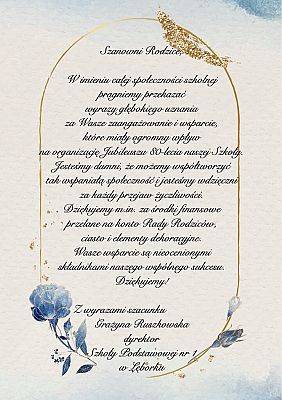 Szanowni Rodzice,
W imieniu całej społeczności szkolnej
pragniemy przekazać
wyrazy głębokiego uznania
za Wasze zaangażowanie i wsparcie,
które miały ogromny wpływ
na organizację Jubileuszu 80-lecia naszej Szkoły.
Jesteśmy dumni, że możemy współtworzyć
tak wspaniałą społeczność i jesteśmy wdzięczni
za każdy przejaw życzliwości.
Dziękujemy m.in. za środki finansowe
przelane na konto Rady Rodziców,
ciasto i elementy dekoracyjne.
Wasze wsparcie są nieocenionymi
składnikami naszego wspólnego sukcesu.
Dziękujemy!
Z wyrazami szacunku
Grażyna Ruszkowska
dyrektor
Szkoły Podstawowej nr 1
w Lęborku